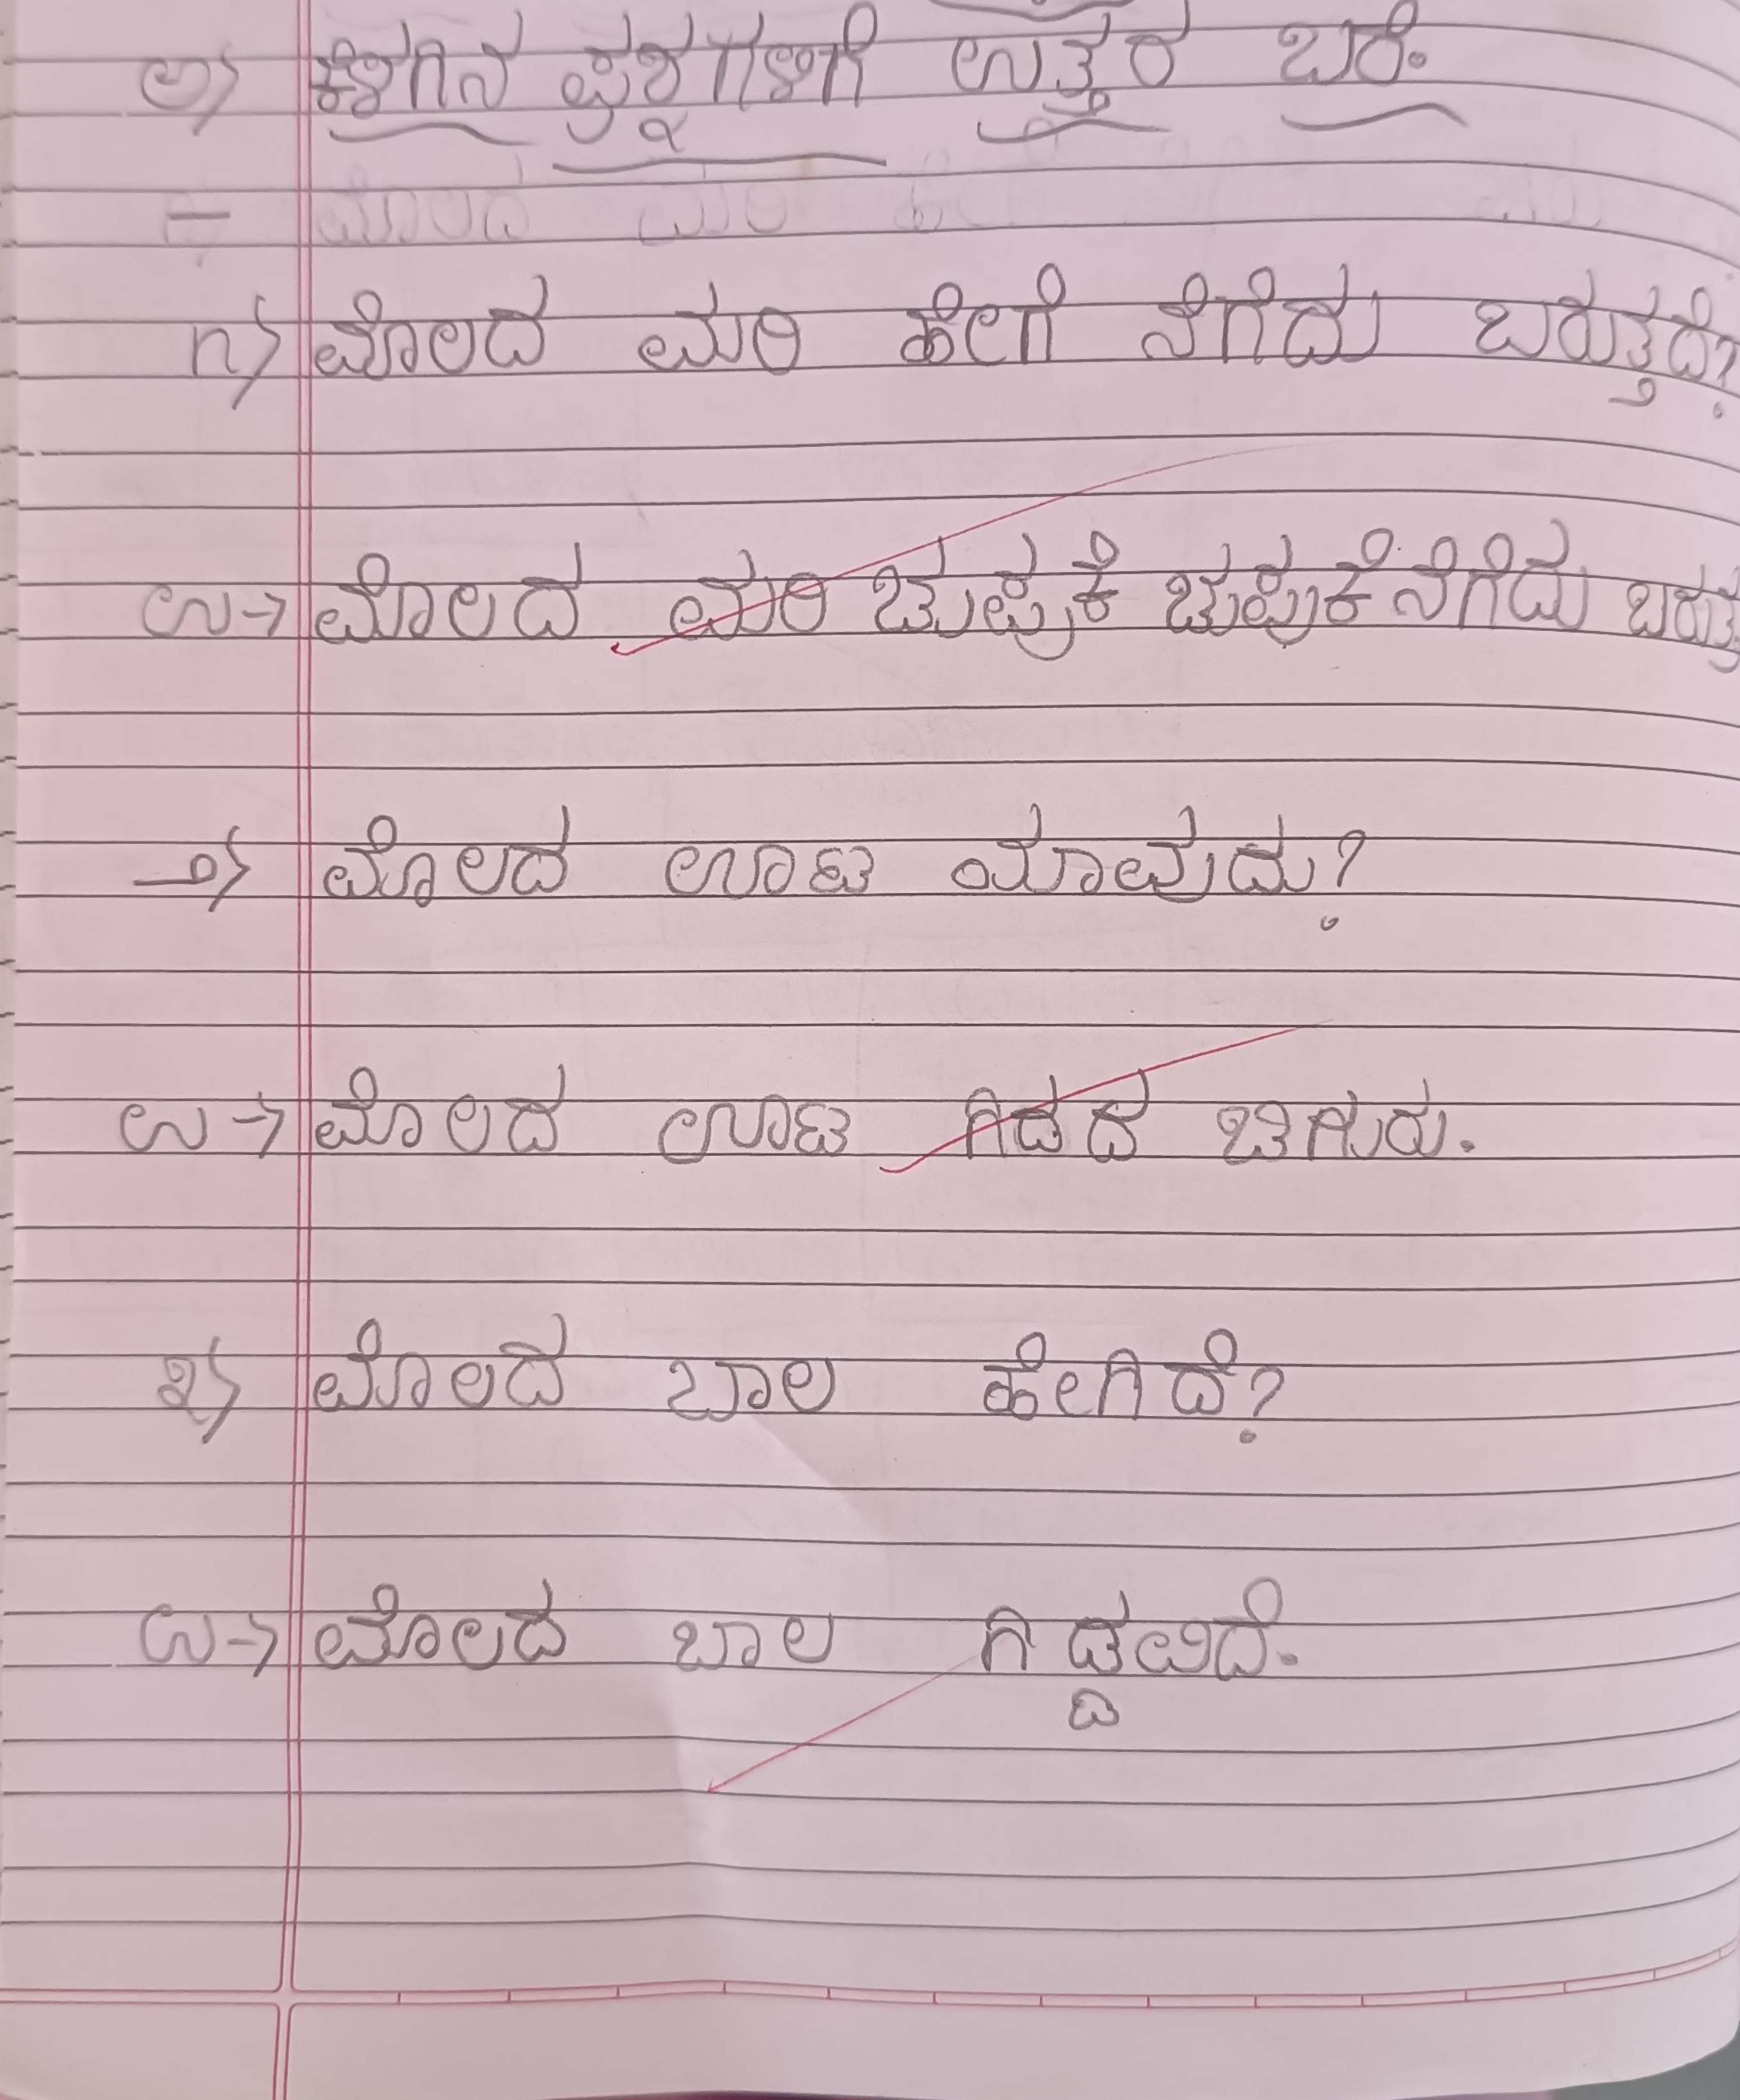 ಅ) ಕೆಳಗಿನ ಪ್ರಶ್ನೆಗಳಿಗೆ ಉತ್ತರ ಬರೆ.
೧) ಮೊಲದ ಮರಿ ಹೇಗೆ ನೆಗೆದು ಬರುತ್ತದೆ?
ಉ→ ಮೊಲದ ಮರಿ ಚುಪ್ಪುಕೆ ಚುಪ್ಪುಕೆ ನೆಗೆದು
೨) ಮೊಲದ ಊಟ ಯಾವುದು?
ಉ→ ಮೊಲದ ಊಟ ಗಿಡದ ಚಿಗುರು.
೩) ಮೊಲದ ಬಾಲ ಹೇಗಿದೆ?
ಉ→ ಮೊಲದ ಬಾಲ ಗಿಡ್ಡವಿದೆ.